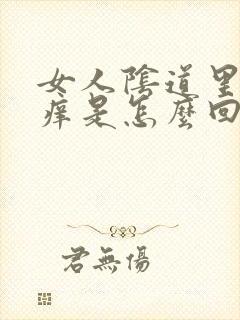 女人陰道里
痒是怎麼回
君無傷